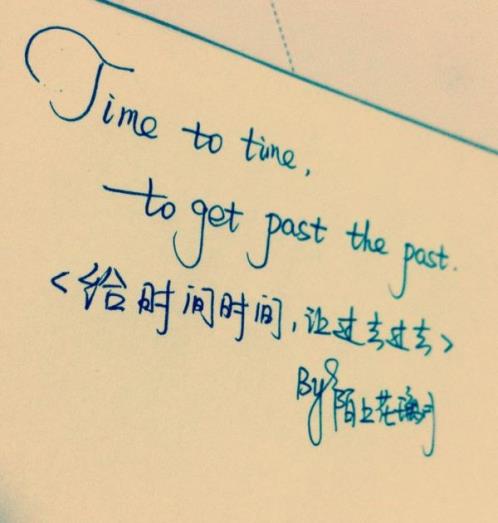 Time to time,
to get past the past.
<给时间时间,让过去过去>
By 陌上花